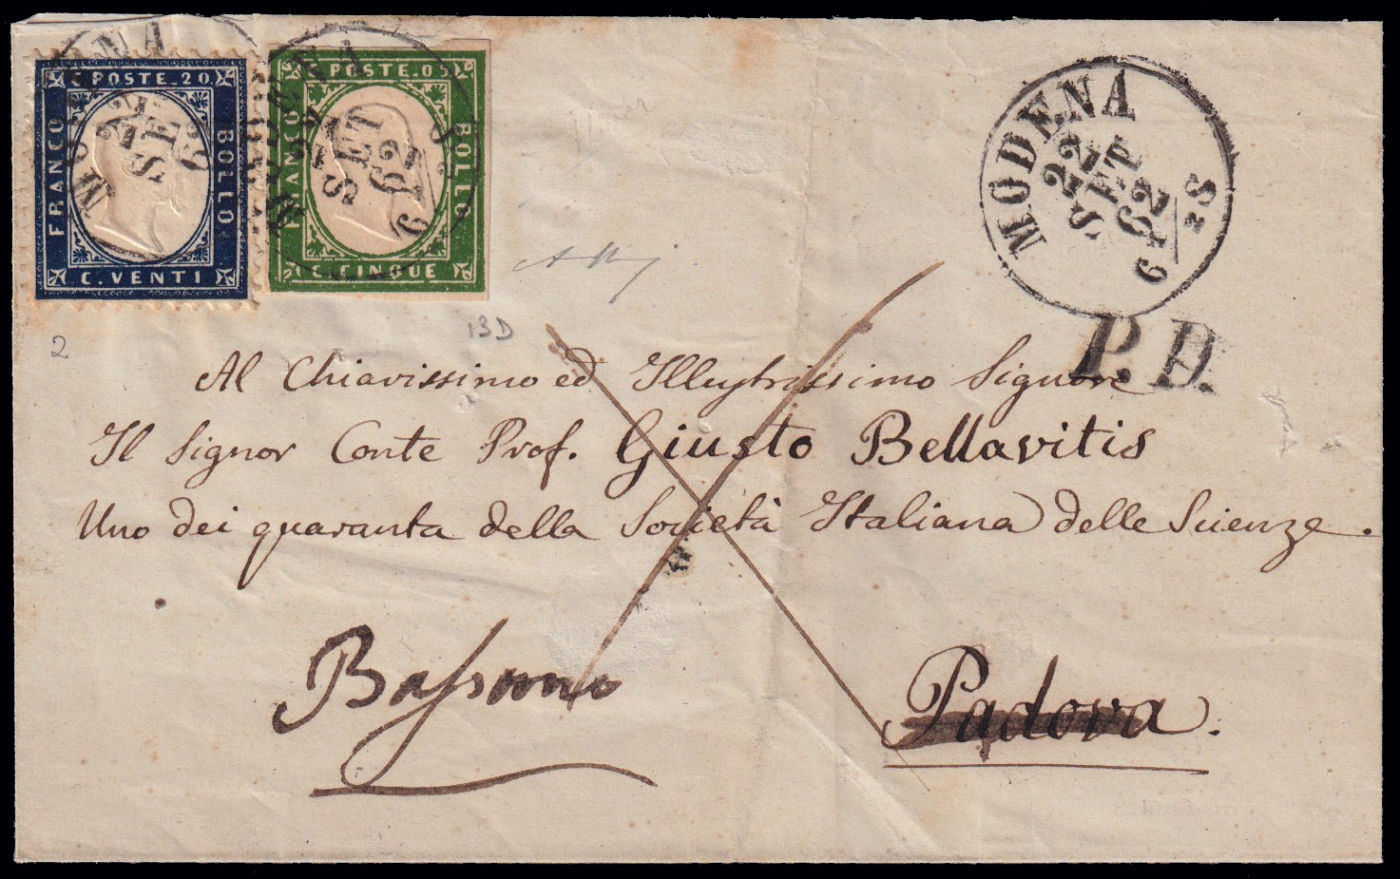 C. POSTE. 20
FRANCO
BOLLO
C. VENTI
C. POSTE. 05
FRANCO
BOLLO
C. CINQUE
MODENA
22
SET
62
9
MODENA
22
SET
62
9
Sª
MODENA
22
SET
62
9
Sª
P. D.
2
13D
Al Chiarissimo ed Illustrissimo Signore
Il Signor Conte Prof. Giusto Bellavitis
Uno dei quaranta della Società Italiana delle Scienze.
Bassano
Padova.